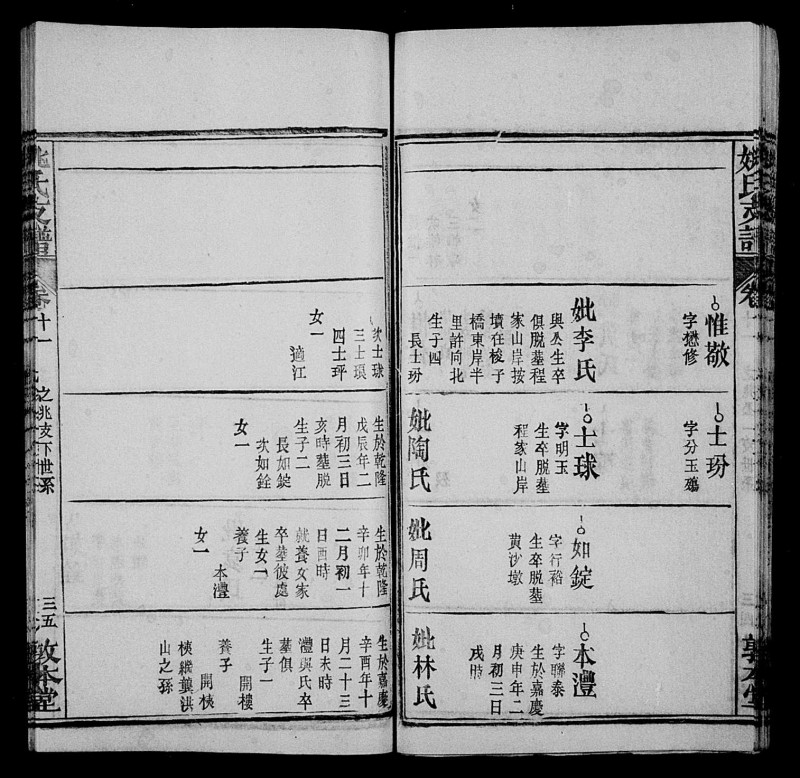 姚氏支譜
卷
惟敬
字懋修
妣李氏
與公生卒
俱脱墓程
家山岸按
墳在梭子
橋東岸半
里許向北
生子四
長士玢
次士球
三士瑻
四士玶
女一
適江
士玢
字分玉殤
士球
字明玉
生卒脱墓
程家山岸
妣陶氏
生於乾隆
戊辰年二
月初三日
亥時墓脱
生子二
長如錠
次如銓
女一
如錠
字行裕
生卒脱墓
黄沙墩
妣周氏
生於乾隆
辛卯年十
二月初一
日酉時
就養女家
卒墓彼處
生女二
養子
本澧
女一
本澧
字聯泰
生於嘉慶
庚申年二
月初三日
戌時
妣林氏
生於嘉慶
辛酉年十
月二十三
日未時
澧與氏卒
墓俱
生子一
開樓
養子
開模
模繼龔洪
山之孫
敦本堂
姚氏支譜
卷十一
之兆支下世系
三五
敦本堂